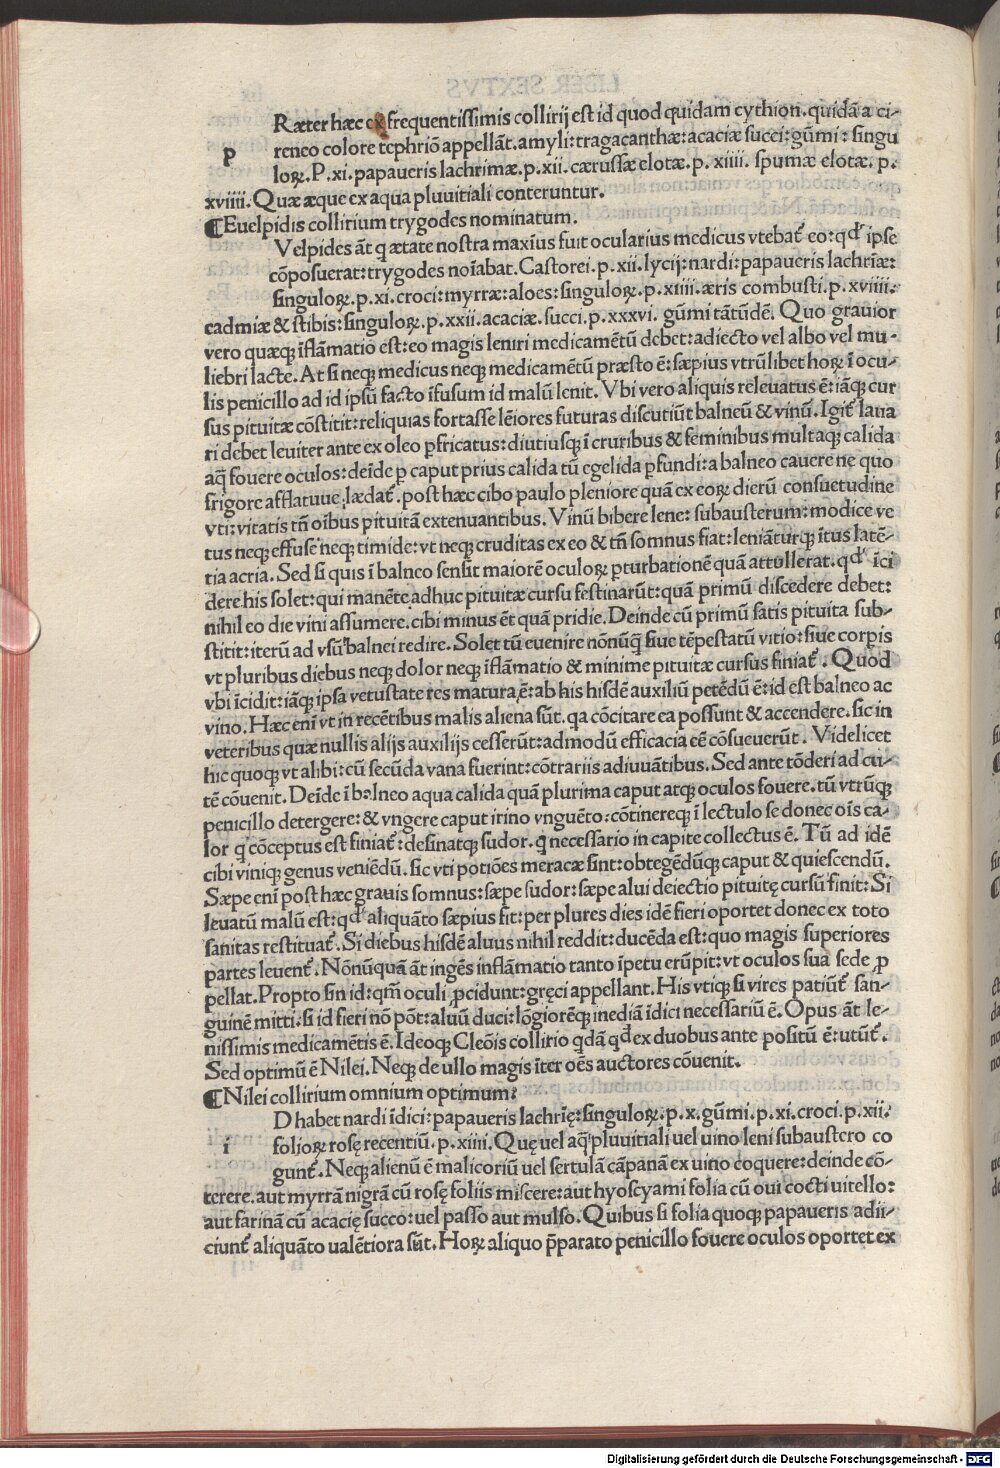 Ræter hæc ex frequentissimis collirij est id quod quidam cythion. quidã a ci-
p reneo colore tephriõ appellãt. amyli: tragacanthæ: acaciæ succi: gũmi: singu
loꝝ. P. xi. papaueris lachrimæ. p. xii. cærussæ elotæ. p. xiiii. spumæ elotæ. p.
xviiii. Quæ æque ex aqua pluuitiali conteruntur.
¶Euelpidis collirium trygodes nominatum.
Velpides ãt q ætate nostra maxĩus fuit ocularius medicus vtebat̃ eo: qđ ipse
cõposuerat: trygodes noĩabat. Castorei. p. xii. lycij: nardi: papaueris lachrĩæ:
singuloꝝ. p. xi. croci: myrræ: aloes: singuloꝝ. p. xiiii. æris combusti. p. xviiii.
cadmiæ & stibis: singuloꝝ. p. xxii. acaciæ. succi. p. xxxvi. gũmi tãtũdẽ. Quo grauior
vero quæqꝫ ĩflãmatio est: eo magis leniri medicamẽtũ debet: adiecto vel albo vel mu-
liebri lacte. At si neqꝫ medicus neqꝫ medicamẽtũ præsto ẽ: sæpius vtrũlibet hoꝝ ĩ ocu
lis penicillo ad id ipsũ facto ĩfusum id malũ lenit. Vbi vero aliquis releuatus ẽ: iãqꝫ cur
sus pituitæ cõstitit: reliquias fortasse lẽiores futuras discutiũt balneũ & vinũ. Igit̃ laua
ri debet leuiter ante ex oleo ꝑfricatus: diutiusqꝫ ĩ cruribus & feminibus multaqꝫ calida
aq̃ fouere oculos: deĩde ꝑ caput prius calida tũ egelida ꝑfundi: a balneo cauere ne quo
frigore afflatuue lædat̃. post hæc cibo paulo pleniore quã ex eoꝝ dierũ consuetudine
vti: vitatis tñ oĩbus pituitã extenuantibus. Vinũ bibere lene: subausterum: modice ve
tus neqꝫ effuse neqꝫ timide: vt neqꝫ cruditas ex eo & tñ somnus fiat: leniãturqꝫ ĩtus latẽ-
tia acria. Sed si quis ĩ balneo sensit maiorẽ oculoꝝ ꝑturbationẽ quã attullerat. qđ ĩci
dere his solet: qui manẽte adhuc pituitæ cursu festinarũt: quã primũ discedere debet:
nihil eo die vini assumere. cibi minus ẽt quã pridie. Deinde cũ primũ satis pituita sub-
stitit: iterũ ad vsũ balnei redire. Solet tũ euenire nõnũq̃ siue tẽpestatũ vitio: siue corꝑis
vt pluribus diebus neqꝫ dolor neqꝫ ĩflãmatio & minime pituitæ cursus finiat̃. Quod
vbi ĩcidit: iãqꝫ ipsa vetustate res matura ẽ: ab his hisdẽ auxiliũ petẽdũ ẽ: id est balneo ac
vino. Hæc enĩ vt in recẽtibus malis aliena sũt. qa cõcitare ea possunt & accendere. sic in
veteribus quæ nullis alijs auxilijs cesserũt: admodũ efficacia eẽ cõsueuerũt. Videlicet
hic quoqꝫ vt alibi: cũ secũda vana fuerint: cõtrariis adiuuãtibus. Sed ante tõderi ad cu-
tẽ cõuenit. Deĩde ĩ balneo aqua calida quã plurima caput atqꝫ oculos fouere. tũ vtrũqꝫ
penicillo detergere: & vngere caput irino vnguẽto: cõtinereqꝫ ĩ lectulo se donec oĩs ca-
lor q̇ cõceptus est finiat̃: desinatqꝫ sudor. q necessario in capite collectus ẽ. Tũ ad idẽ
cibi viniqꝫ genus veniẽdũ. sic vti potiões meracæ sint: obtegẽdũqꝫ caput & quiescendũ.
Sæpe enĩ post hæc grauis somnus: sæpe sudor: sæpe alui deiectio pituitę cursũ finit: Si
leuatũ malũ est: qđ aliquãto sæpius fit: per plures dies idẽ fieri oportet donec ex toto
sanitas restituat̃. Si diebus hisdẽ aluus nihil reddit: ducẽda est: quo magis superiores
partes leuent̃. Nõnũquã ãt ingẽs inflãmatio tanto ĩpetu erũpit: vt oculos sua sede ꝓ
pellat. Propto sin id: qm̃ oculi ꝓcidunt: gręci appellant. His vtiqꝫ si vires patiũt̃ san-
guinẽ mitti. si id fieri nõ põt: aluũ duci: lõgiorẽqꝫ inediã ĩdici necessariũ ẽ. Opus ãt le-
nissimis medicamẽtis ẽ. Ideoqꝫ Cleõis collirio qdã qđ ex duobus ante positũ ẽ: utũt̃.
Sed optimũ ẽ Nilei. Neqꝫ de ullo magis ĩter oẽs auctores cõuenit.
¶Nilei collirium omnium optimum:
D habet nardi ĩdici: papaueris lachrĩę: singuloꝝ. p. x. gũmi. p. xi. croci. p. xii.
i folioꝝ rosę recentiũ. p. xiiii. Quę uel aq̃ pluuitiali uel uino leni subaustero co
gunt̃. Neqꝫ alienũ ẽ malicoriũ uel sertulã cãpanã ex uino coquere: deinde cõ-
terere. aut myrrã nigrã cũ rosę foliis miscere: aut hyoscyami folia cũ oui cocti uitello:
aut farinã cũ acacię succo: uel passo aut mulso. Quibus si folia quoqꝫ papaueris adii-
ciunt̃ aliquãto ualẽtiora sũt. Hoꝝ aliquo p̃parato penicillo fouere oculos oportet ex
Digitalisierung gefördert durch die Deutsche Forschungsgemeinschaft - DFG